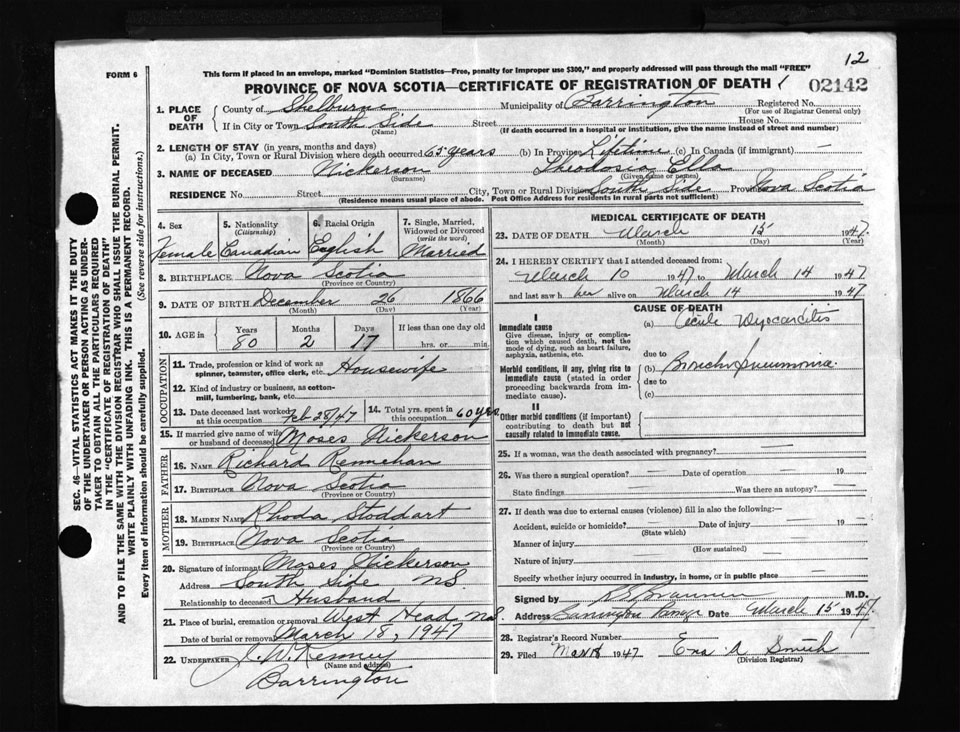 12
FORM 6
This form if placed in an envelope, marked "Dominion Statistics—Free, penalty for improper use $300," and properly addressed will pass through the mail "FREE"
PROVINCE OF NOVA SCOTIA—CERTIFICATE OF REGISTRATION OF DEATH
02142
1. PLACE OF DEATH County of Shelburne Municipality of Barrington Registered No.
(For use of Registrar General only)
If in City or Town South Side Street House No.
(Name) (If death occurred in a hospital or institution, give the name instead of street and number)
2. LENGTH OF STAY (in years, months and days)
(a) In City, Town or Rural Division where death occurred 65 years (b) In Province Lifetime (c) In Canada (if immigrant) —
3. NAME OF DECEASED Nickerson Theodosia Ella
(Surname) (Given name or names)
RESIDENCE No. Street City, Town or Rural Division South Side Province Nova Scotia
(Residence means usual place of abode. Post Office Address for residents in rural parts not sufficient)
4. Sex 5. Nationality (Citizenship) 6. Racial Origin 7. Single, Married, Widowed or Divorced (write the word)
Female Canadian English Married
8. BIRTHPLACE Nova Scotia
(Province or Country)
9. DATE OF BIRTH December 26 1866
(Month) (Day) (Year)
10. AGE in Years Months Days If less than one day old
80 2 17 hrs. or min.
OCCUPATION
11. Trade, profession or kind of work as spinner, teamster, office clerk, etc. Housewife
12. Kind of industry or business, as cotton-mill, lumbering, bank, etc.
13. Date deceased last worked at this occupation Feb 28/47 14. Total yrs. spent in this occupation 60 yrs
15. If married give name of wife or husband of deceased Moses Nickerson
FATHER
16. NAME Richard Rennehan
17. BIRTHPLACE Nova Scotia
(Province or Country)
MOTHER
18. MAIDEN NAME Rhoda Stoddart
19. BIRTHPLACE Nova Scotia
(Province or Country)
20. Signature of informant Moses Nickerson
Address South Side NS
Relationship to deceased Husband
21. Place of burial, cremation or removal West Head NS
Date of burial or removal March 18, 1947
22. UNDERTAKER J. W. Kenney
(Name and address)
Barrington
MEDICAL CERTIFICATE OF DEATH
23. DATE OF DEATH March 15 1947
(Month) (Day) (Year)
24. I HEREBY CERTIFY that I attended deceased from:
March 10 1947 to March 14 1947
and last saw her alive on March 14 1947
CAUSE OF DEATH
I
Immediate cause (a) Acute Myocarditis
Give disease, injury or complication which caused death, not the mode of dying, such as heart failure, asphyxia, asthenia, etc.
due to
Morbid conditions, if any, giving rise to immediate cause (stated in order proceeding backwards from immediate cause). (b) Broncho Pneumonia
due to
(c)
II
Other morbid conditions (if important) contributing to death but not causally related to immediate cause.
25. If a woman, was the death associated with pregnancy? —
26. Was there a surgical operation? — Date of operation — 19
State findings Was there an autopsy?
27. If death was due to external causes (violence) fill in also the following:—
Accident, suicide or homicide? Date of injury 19
(State which)
Manner of injury
(How sustained)
Nature of injury
Specify whether injury occurred in industry, in home, or in public place
Signed by M.D.
Address Barrington Passage Date March 15 1947.
28. Registrar's Record Number
29. Filed Mar 18 1947 Ena A Smith
(Division Registrar)
SEC. 46—VITAL STATISTICS ACT MAKES IT THE DUTY OF THE UNDERTAKER OR PERSON ACTING AS UNDERTAKER TO OBTAIN ALL THE PARTICULARS REQUIRED IN THE "CERTIFICATE OF REGISTRATION OF DEATH" AND TO FILE THE SAME WITH THE DIVISION REGISTRAR WHO SHALL ISSUE THE BURIAL PERMIT.
WRITE PLAINLY WITH UNFADING INK. THIS IS A PERMANENT RECORD.
Every item of information should be carefully supplied. (See reverse side for instructions.)